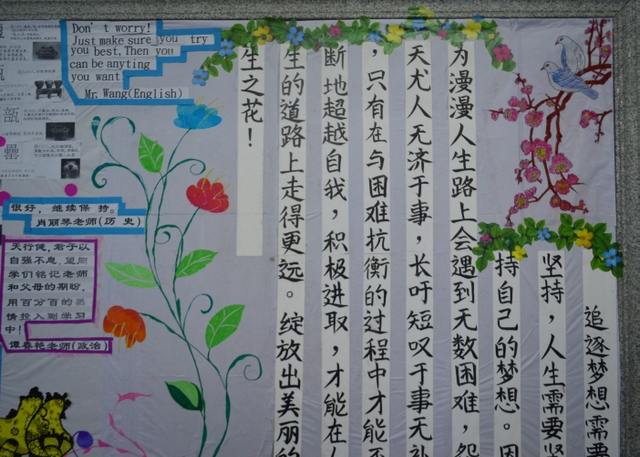 Don't worry!
Just make sure you try
you best.Then you
can be anyting
you want
Mr.Wang(English)
很好，继续保持。
肖丽琴老师(历史)
天行健，君子以
自强不息，望同
学们铭记老师
和父母的期盼，
用百分百的热
情投入到学习
中！
谭春艳老师(政治)
追逐梦想需要
坚持，人生需要坚
持自己的梦想。因
为漫漫人生路上会遇到无数困难，怨
天尤人无济于事，长吁短叹于事无补
，只有在与困难抗衡的过程中才能不
断地超越自我，积极进取，才能在人
生的道路上走得更远。绽放出美丽的
生之花！